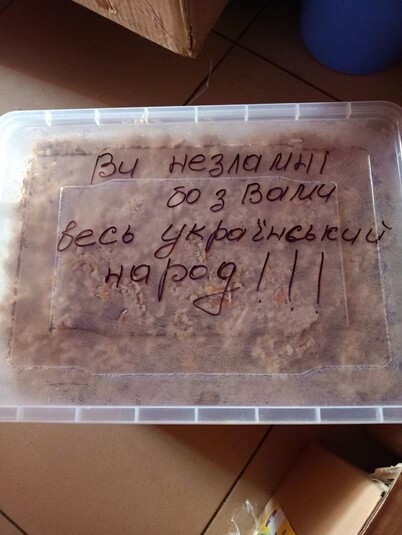 Ви незламні
бо з Вами
весь український
народ!!!